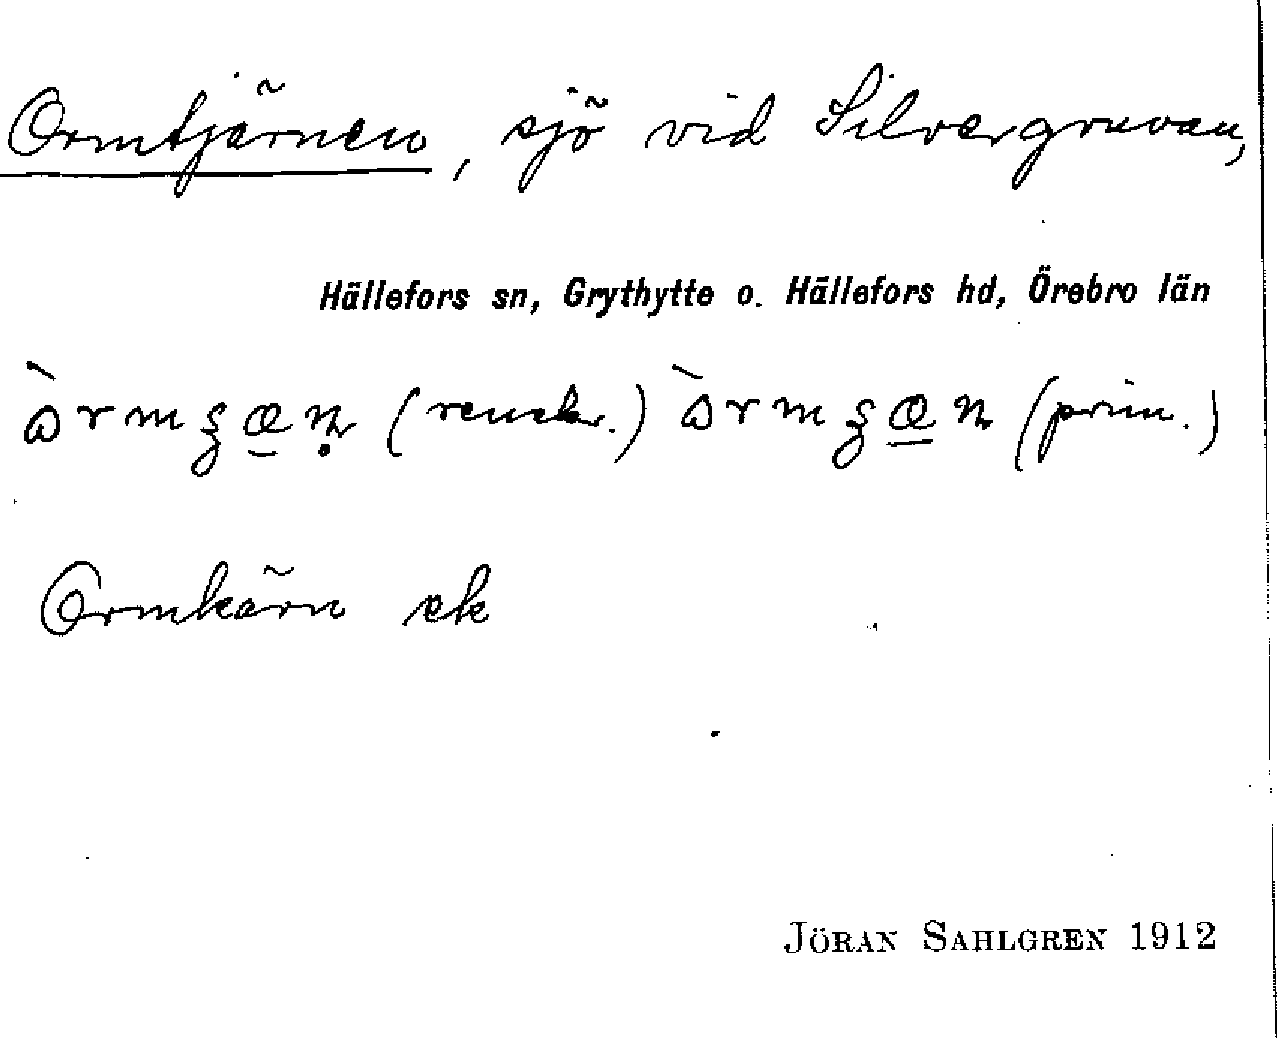 Ormtjärnen, sjö vid Silvergruvan,
Hällefors sn, Grythytte o. Hällefors hd, Örebro län
(prim.)
Ormkärn ek
JÖRAN SAHLGREN 1912